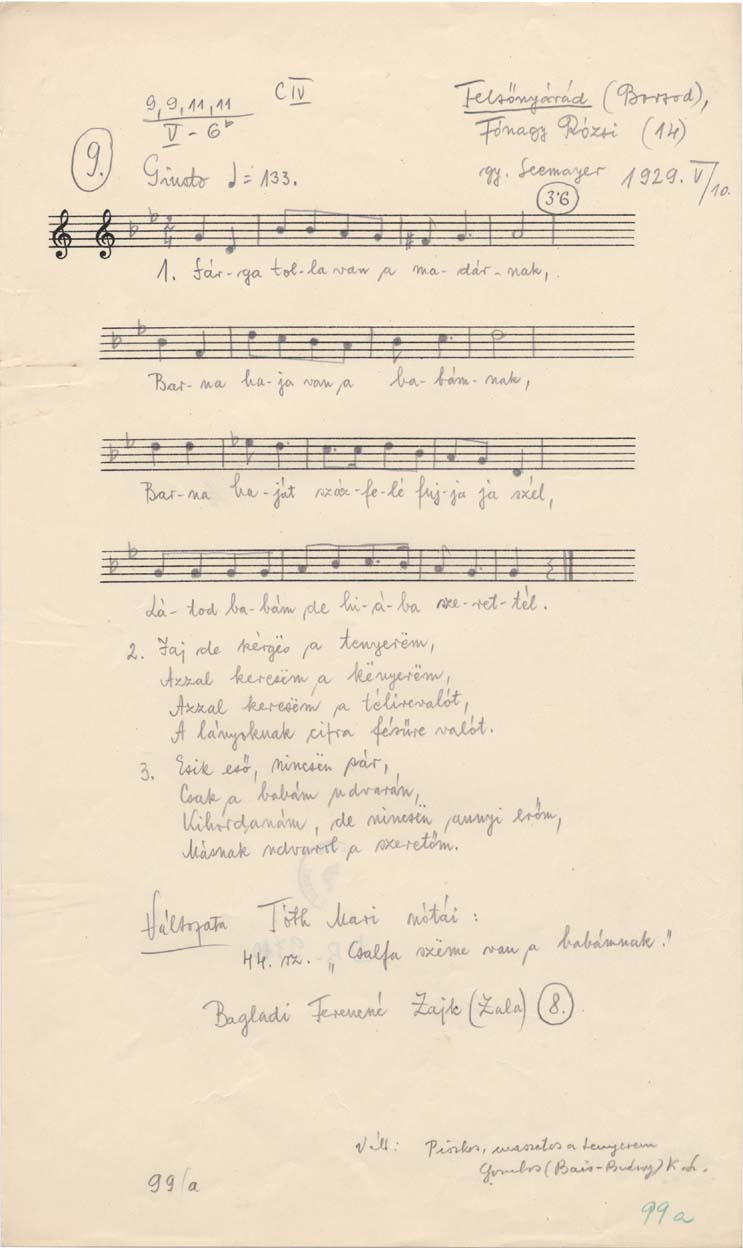 9, 9, 11, 11
V - 6♭
C IV
Felsőnyárád (Borsod),
Fónagy Rózsi (14)
gy. Seemayer 1929. V/10.
9.
Giusto ♩ = 133.
36
1. Sár-ga tol-la van a ma-dár-nak,
Bar-na ha-ja van a ba-bám-nak,
Bar-na ha-ját száz-fe-lé fuj-ja ja szél,
Lá-tod ba-bám de hi-á-ba sze-ret-tél.
2. Jaj de kérgës a tenyerëm,
Azzal keresëm a kënyerëm,
Azzal keresëm a télirevalót,
A lányoknak cifra fésüre valót.
3. Esik eső, nincsën sár,
Csak a babám udvarán,
Kihordanám, de nincsën annyi erőm,
Másnak udvarol a szeretőm.
Változata Tóth Mari nótái:
44. sz. „Csalfa szëme van a babámnak."
Bagladi Ferencné Zajk (Zala) 8.
Vált: Piszkos, maszatos a tenyerem
Gombos (Bács-Bodrog) K.
99/a
99a